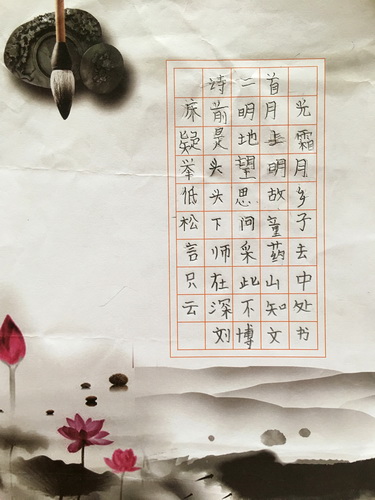 诗二首
床前明月光
疑是地上霜
举头望明月
低头思故乡
松下问童子
言师采药去
只在此山中
云深不知处
刘博文书